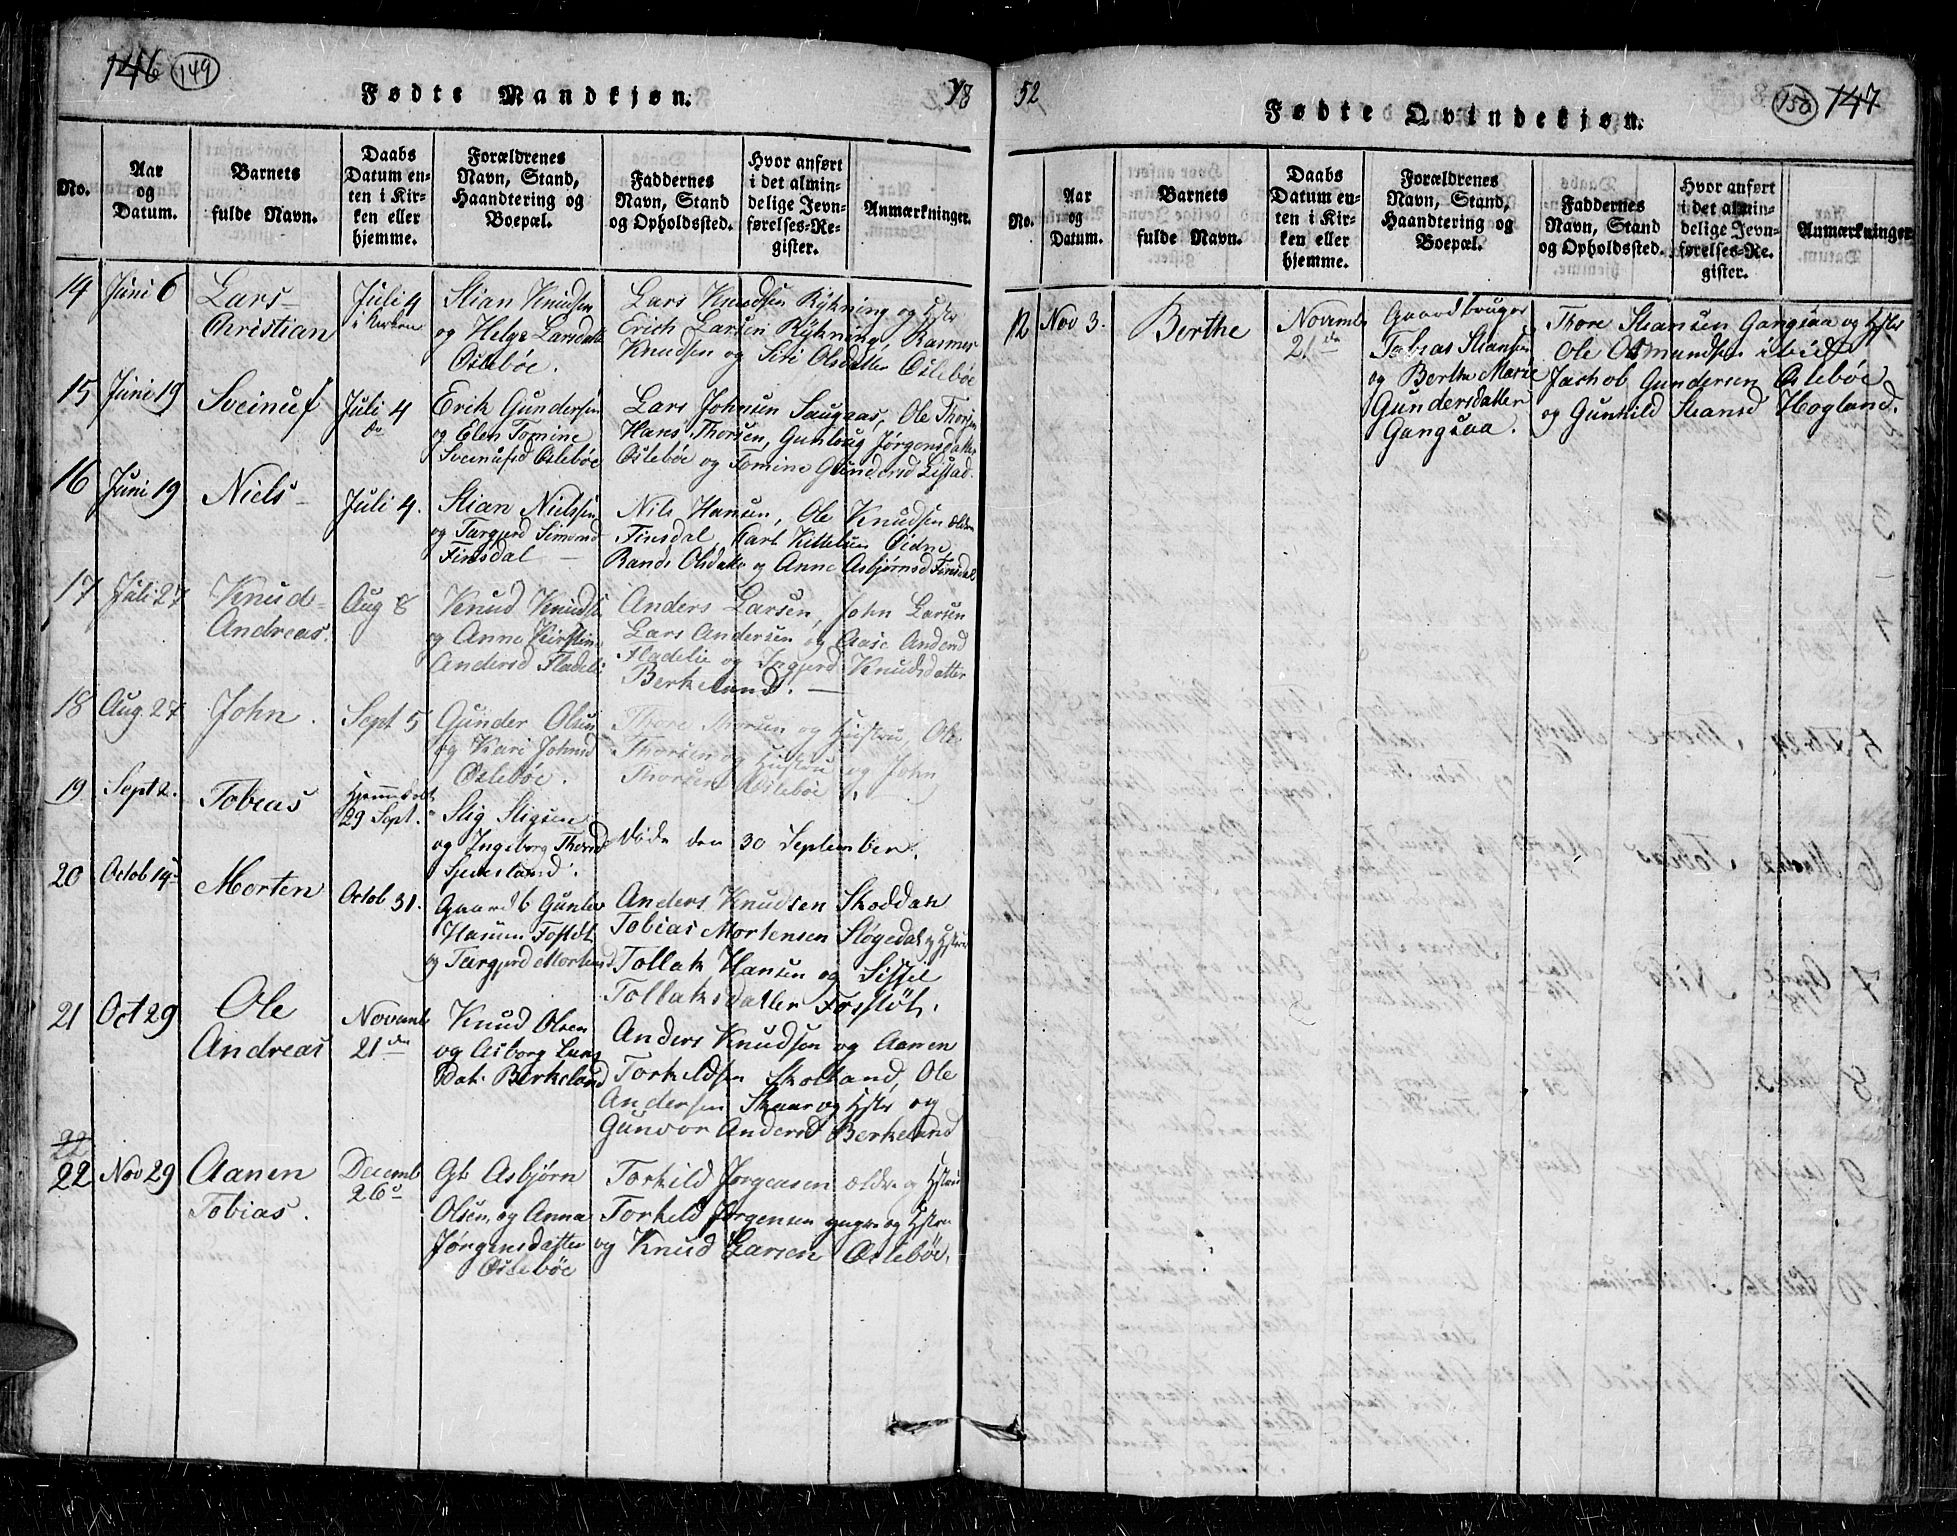 146 149
Fødte Mandkjøn.
18
No.
Aar
og
Datum.
Barnets
fulde Navn.
Daabs
Datum en-
ten i Kir-
ken eller
hjemme.
Forældrenes
Navn, Stand,
Haandtering og
Boepæl.
Faddernes
Navn, Stand
og Opholdssted.
Hvor anført
i det almin-
delige Jevn-
førelses-Re-
gister.
Anmærkninger.
14 Juni 6
Lars
Christian
Juli 4
i Kirken
Stian Knudsen
og Helge Larsdatt
Oslebøe.
Lars Knudsen Rykning og Hstr
Erich Larsen Rykning, Rasmus
Knudsen og Siri Olsdatter Oslebøe
15 Juni 19
Sveinuf
Juli 4
Erik Gundersen
og Elen Tomine
Sveinufsd Oslebøe
Lars Johnsen Saugaas, Ole Thorsen
Hans Thorsen, Gunloug Jørgensdatter
Oslebøe og Tomine Gundersd
16 Juni 19
Niels
Juli 4.
Stian Nielsen
og Targjerd Simonsd
Finsdal
Nils Hansen, Ole Knudsen ældre
Finsdal, Carl Kittelsen Øidne,
Randi Olsdatter og Anne Asbjørnsd Finsdal
17 Juli 27
Knud
Andreas.
Aug 8
Knud Knuds
og Anne Kirstine
Andersd Fladeli
Anders Larsen, John Larsen
Lars Andersen og Aase Andersd
Fladelie og Ingjerd Knudsdatter
Berkeland.
18 Aug. 27
John.
Sept 5
Gunder Olsen
og Kari Johnsd
Oslebøe.
Thore Thorsen og Hustru, Ole
Thorsen og Hustru og John
Thorsen Oslebøe
19 Sept 2.
Tobias
Hjemmedøbt
29 Sept.
Stig Stigsen
og Ingeborg Thorsd
Døde den 30 September.
20 Octob 19
Morten
Octob 31.
Gaardb Gunlev
Hansen
og Targjerd Mortensd
Anders Knudsen Skoddan
Tobias Mortensen Sløgedal og Hstru
Tollak Hansen og Sissel
Tollaksdatter
21 Oct 29
Ole
Andreas
Novemb
21 de
Knud Olsen
og Asborg Lars
Dat. Berkeland
Anders Knudsen og Aanen
Torkeldsen Skolland, Ole
Andersen Skaar og Hstr og
Gunvor Andersd Berkeland
22
22 Nov 29
Aanen
Tobias.
Decemb
26
Gb Asbjørn
Olsen og Anna
Jørgensdatter
Oslebøe
Torkild Jørgensen ældre og Hstru
Torkeld Jørgensen yngre og Hstru
og Knud Larsen Oslebøe.
52
Fødte Qvindekjøn.
150 147
No.
Aar
og
Datum.
Barnets
fulde Navn.
Daabs
Datum en-
ten i Kir-
ken eller
hjemme.
Forældrenes
Navn, Stand,
Haandtering og
Boepæl.
Faddernes
Navn, Stand
og Opholdssted.
Hvor anført
i det almin-
delige Jevn-
førelses-Re-
gister.
Anmærkninger
12 Nov 3.
Berthe
Novemb
21 de
Gaardbruger
Tobias Stiansen
og Berthe Marie
Gundersdatter
Gangsaa.
Thore Stiansen Gangsaa og Hstr
Ole Osmundsen ibid
Jachob Gundersen Oslebøe
og Gunhild Stiansd Hogland.